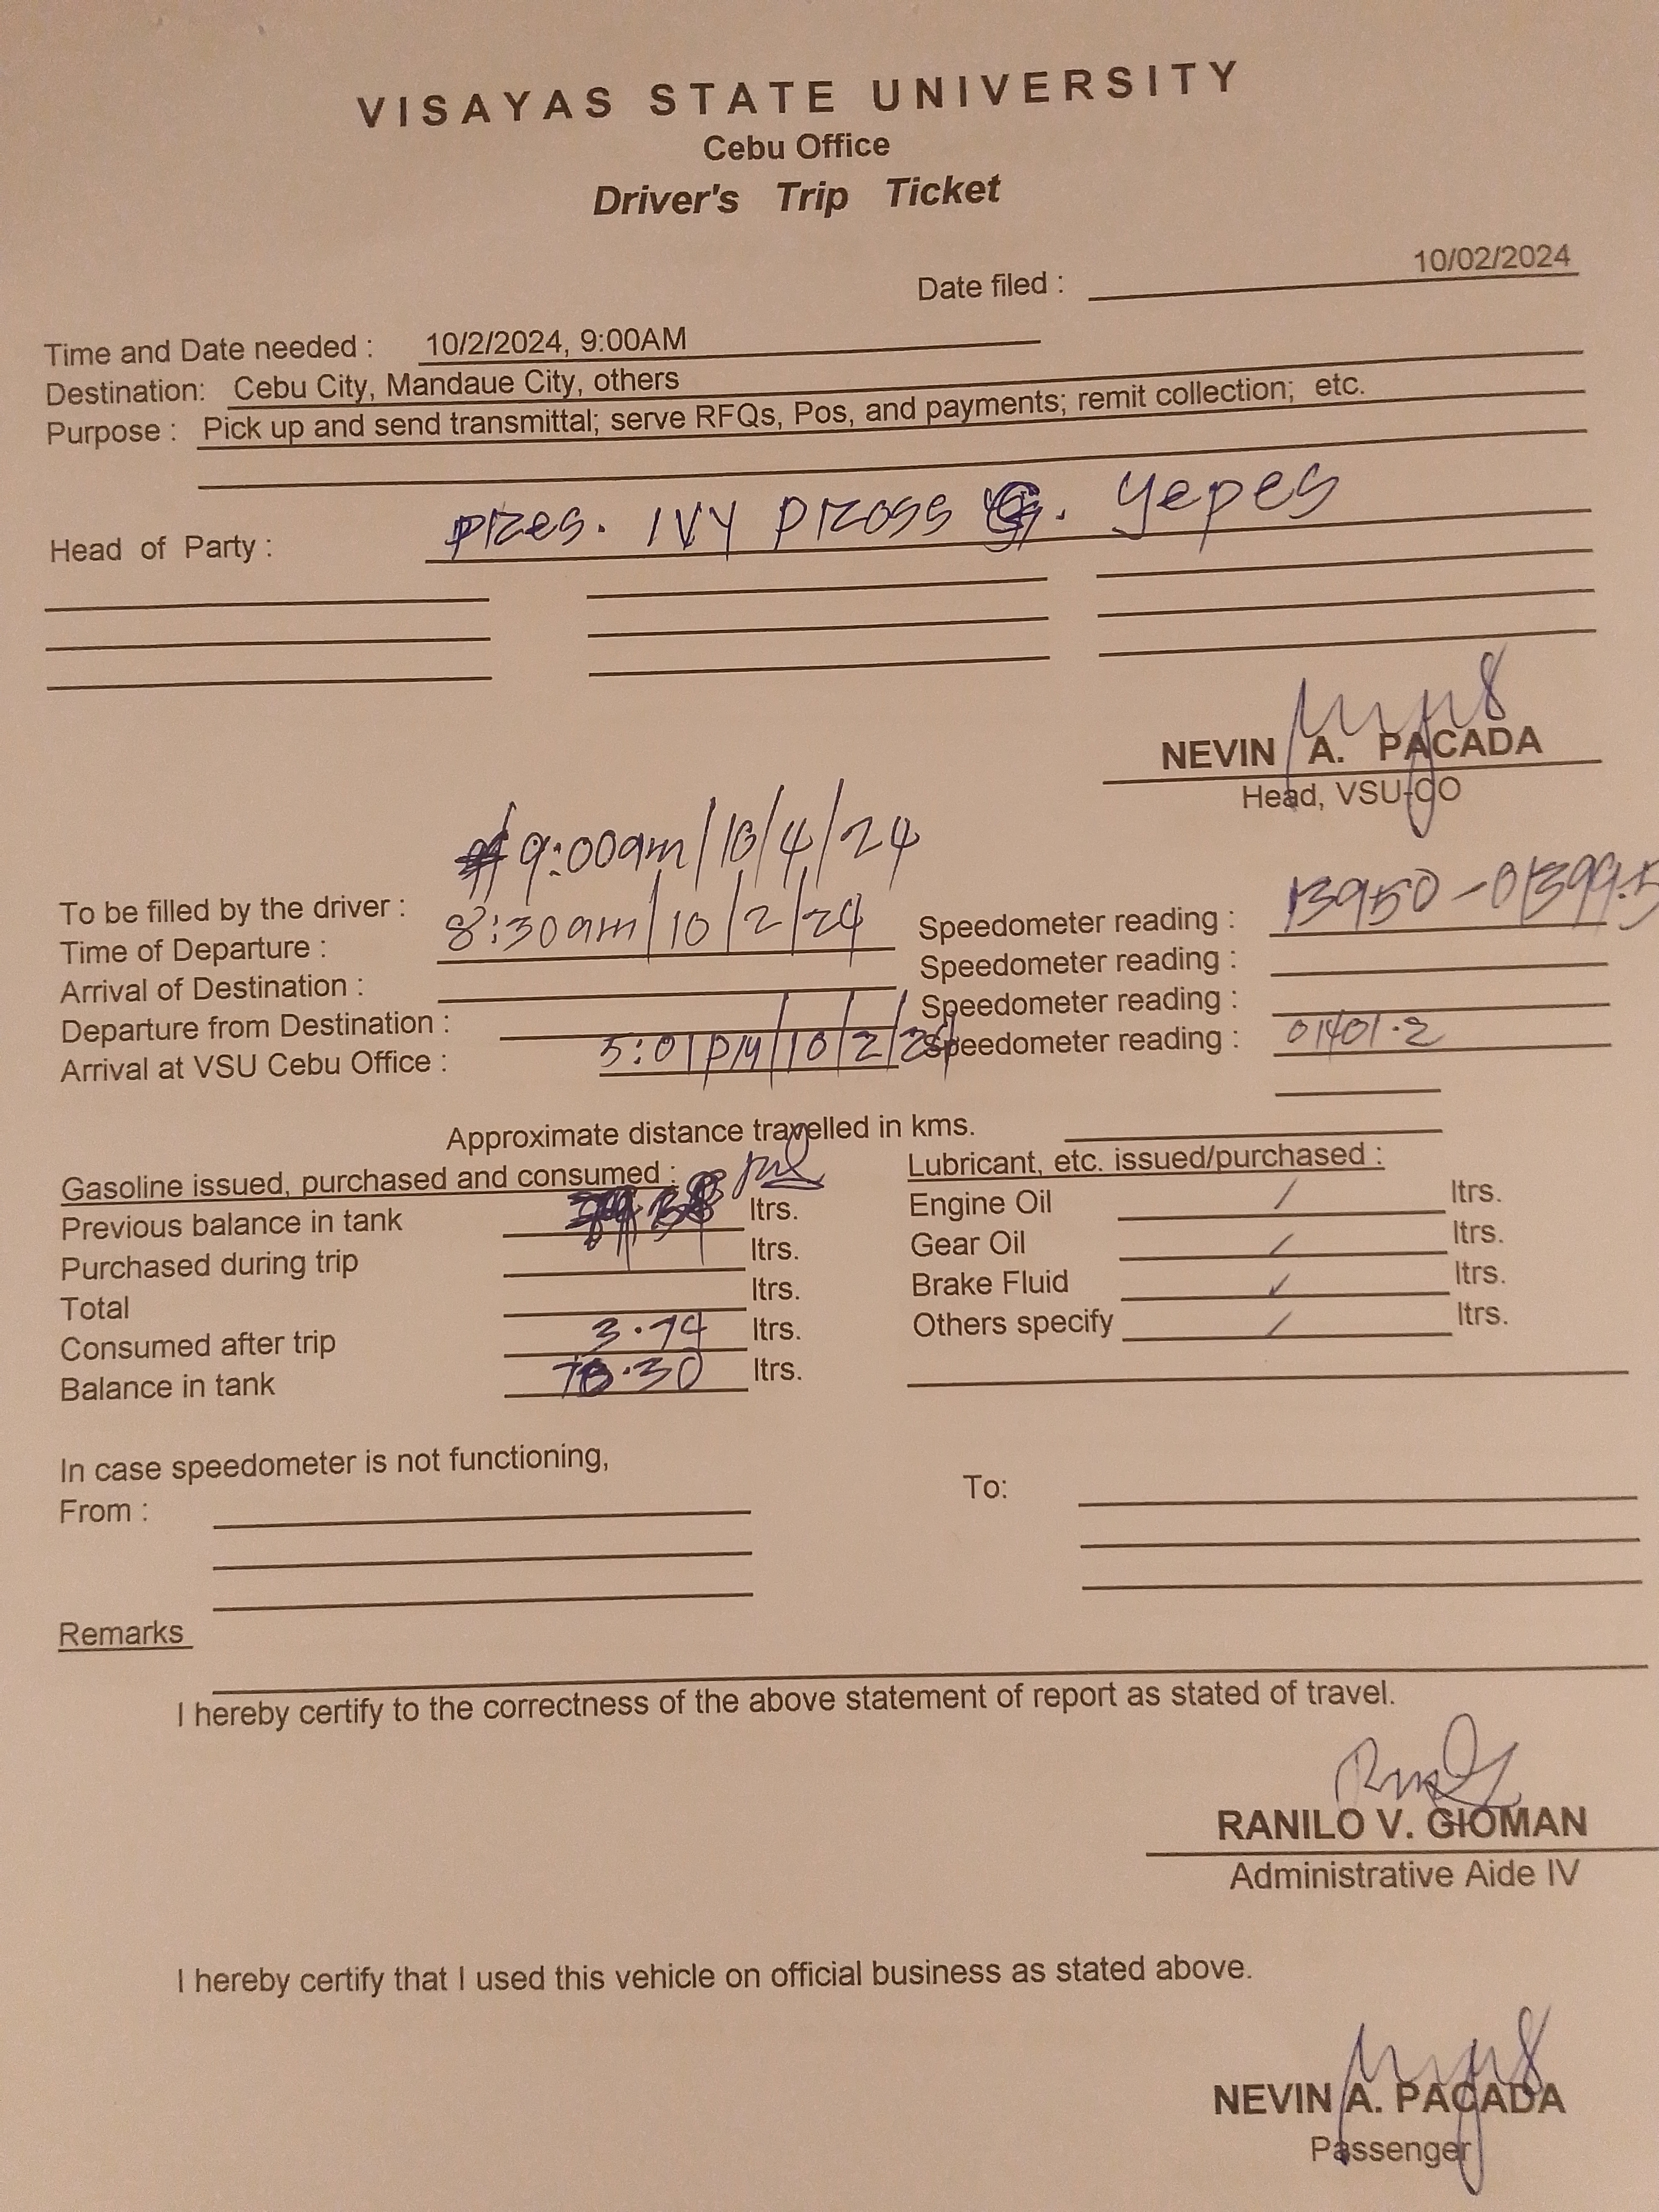 VISAYAS STATE UNIVERSITY
Cebu Office
Driver's Trip Ticket
Date filed : 10/02/2024
Time and Date needed : 10/2/2024, 9:00AM
Destination: Cebu City, Mandaue City, others
Purpose : Pick up and send transmittal; serve RFQs, Pos, and payments; remit collection; etc.
Head of Party : Pres. IVY PROSS G. Yepes
NEVIN A. PACADA
Head, VSU-CO
9:00am/10/4/24
To be filled by the driver :
Time of Departure : 8:30am/10/2/24 Speedometer reading : 13950 -
Arrival of Destination : Speedometer reading :
Departure from Destination : Speedometer reading :
Arrival at VSU Cebu Office : 5:01PM/10/2/24 Speedometer reading : 01401.2
Approximate distance travelled in kms.
Gasoline issued, purchased and consumed : Lubricant, etc. issued/purchased :
Previous balance in tank ltrs. Engine Oil / ltrs.
Purchased during trip ltrs. Gear Oil / ltrs.
Total ltrs. Brake Fluid / ltrs.
Consumed after trip 3.74 ltrs. Others specify / ltrs.
Balance in tank ltrs.
In case speedometer is not functioning,
From : To:
Remarks
I hereby certify to the correctness of the above statement of report as stated of travel.
RANILO V. GIOMAN
Administrative Aide IV
I hereby certify that I used this vehicle on official business as stated above.
NEVIN A. PACADA
Passenger